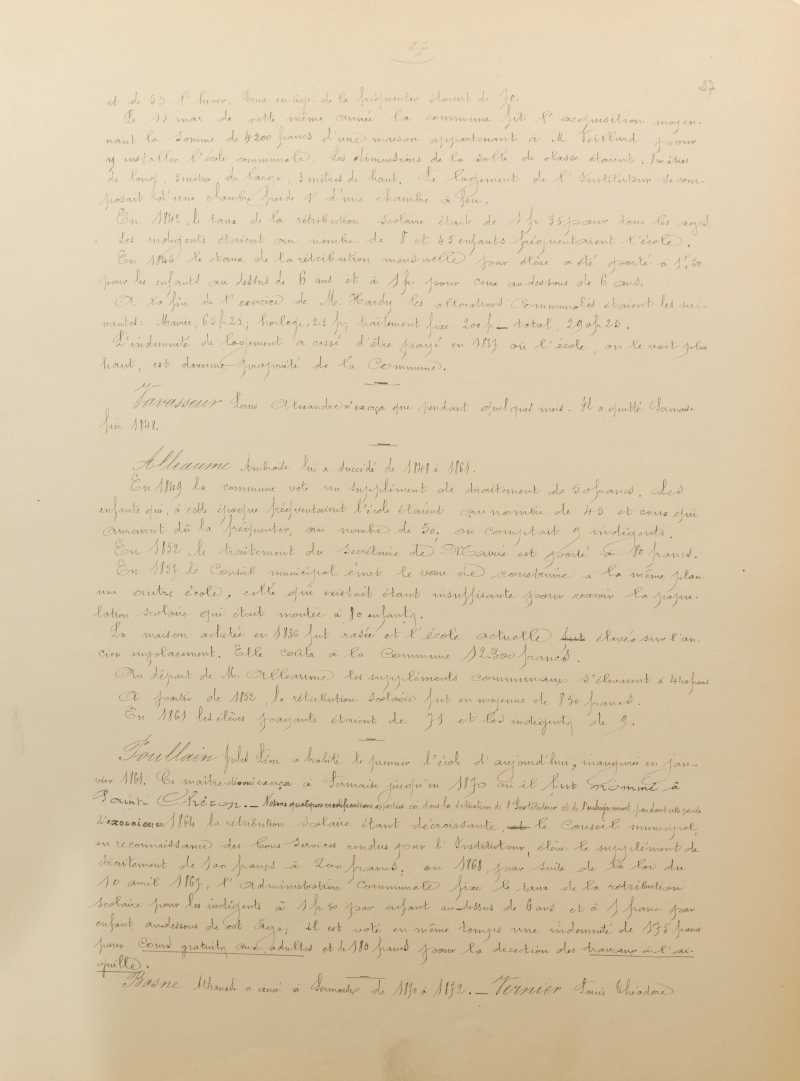 27
57
et de 55 l'hiver. Ceux en âge de la fréquenter étaient de 70.
Le 11 mai de cette même année la commune fit l'acquisition moyen-
nant la somme de 4200 francs d'une maison appartenant à M. Voillard pour
y installer l'école communale. Les dimensions de la salle de classe étaient, 8 mètres
de long, 5 mètres de large, 3 mètres de haut. Le logement de l'Instituteur se com-
posait d'une chambre froide & d'une chambre à feu.
En 1842, le taux de la rétribution scolaire était de 1 f 25 pour tous les âges.
Les indigents étaient au nombre de 8 et 45 enfants fréquentaient l'école.
En 1846 le taux de la rétribution mensuelle par élève a été porté à 1f,50
pour les enfants au dessus de 6 ans et à 1 f. pour ceux au dessous de 6 ans.
A la fin de l'exercice de M. Hardy les allocations communales étaient les sui-
vantes: Mairie, 65 f 25; horloge, 25 f; traitement fixe 200 f — total, 290 f. 25.
L'indemnité de logement a cessé d'être payé en 1837 où l'école, on le voit plus
haut, est devenue propriété de la Commune.
Vavasseur Louis Alexandre n'exerça que pendant quelques mois. Il a quitté Sermaise
fin 1848.
Alleaume Ambroise lui a succédé de 1848 à 1861.
En 1849 la commune vote un supplément de traitement de 50 francs. Les
enfants qui, à cette époque fréquentaient l'école étaient au nombre de 45 et ceux qui
auraient dû la fréquenter, au nombre de 50, on comptait 9 indigents.
En 1852, le traitement du secrétaire de Mairie est porté à 80 francs.
En 1857 le Conseil municipal émet le vœu de construire à la même place
une autre école, celle qui existait étant insuffisante pour recevoir la popu-
lation scolaire qui était montée à 80 enfants.
La maison achetée en 1836 fut rasée et l'école actuelle fut élevée sur l'an-
cien emplacement. Elle coûta à la Commune 12.300 francs.
Au départ de M. Alleaume les suppléments communaux s'élevaient à 400 francs
A partir de 1852, la rétribution scolaire fut en moyenne de 850 francs.
En 1861 les élèves payants étaient de 71 et les indigents de 9.
Poullain Jules Léon a habité le premier l'école d'aujourd'hui, inaugurée en jan-
vier 1861. Ce maître exerça à Sermaise jusqu'en 1870 où il fut nommé à
Saint-Chéron. — Notons quelques modifications apportées ici dans la situation de l'Instituteur et de l'enseignement pendant cette période
d'exercice: en 1864 la rétribution scolaire étant décroissante, le Conseil municipal,
en reconnaissance des bons services rendus par l'Instituteur, élève le supplément de
traitement de 100 francs à 200 francs, en 1868, par suite de la loi du
10 avril 1867, l'administration Communale fixe le taux de la rétribution
scolaire pour les indigents à 1 f 50 par enfant au-dessus de 6 ans et à 1 franc par
enfant au-dessous de cet âge; il est voté en même temps une indemnité de 175 francs
pour Cours gratuits aux adultes et de 180 francs pour la direction des travaux à l'ai-
guille.
Basne Athanase a exercé à Sermaise de 1870 à 1872. — Vernier Louis Théodore